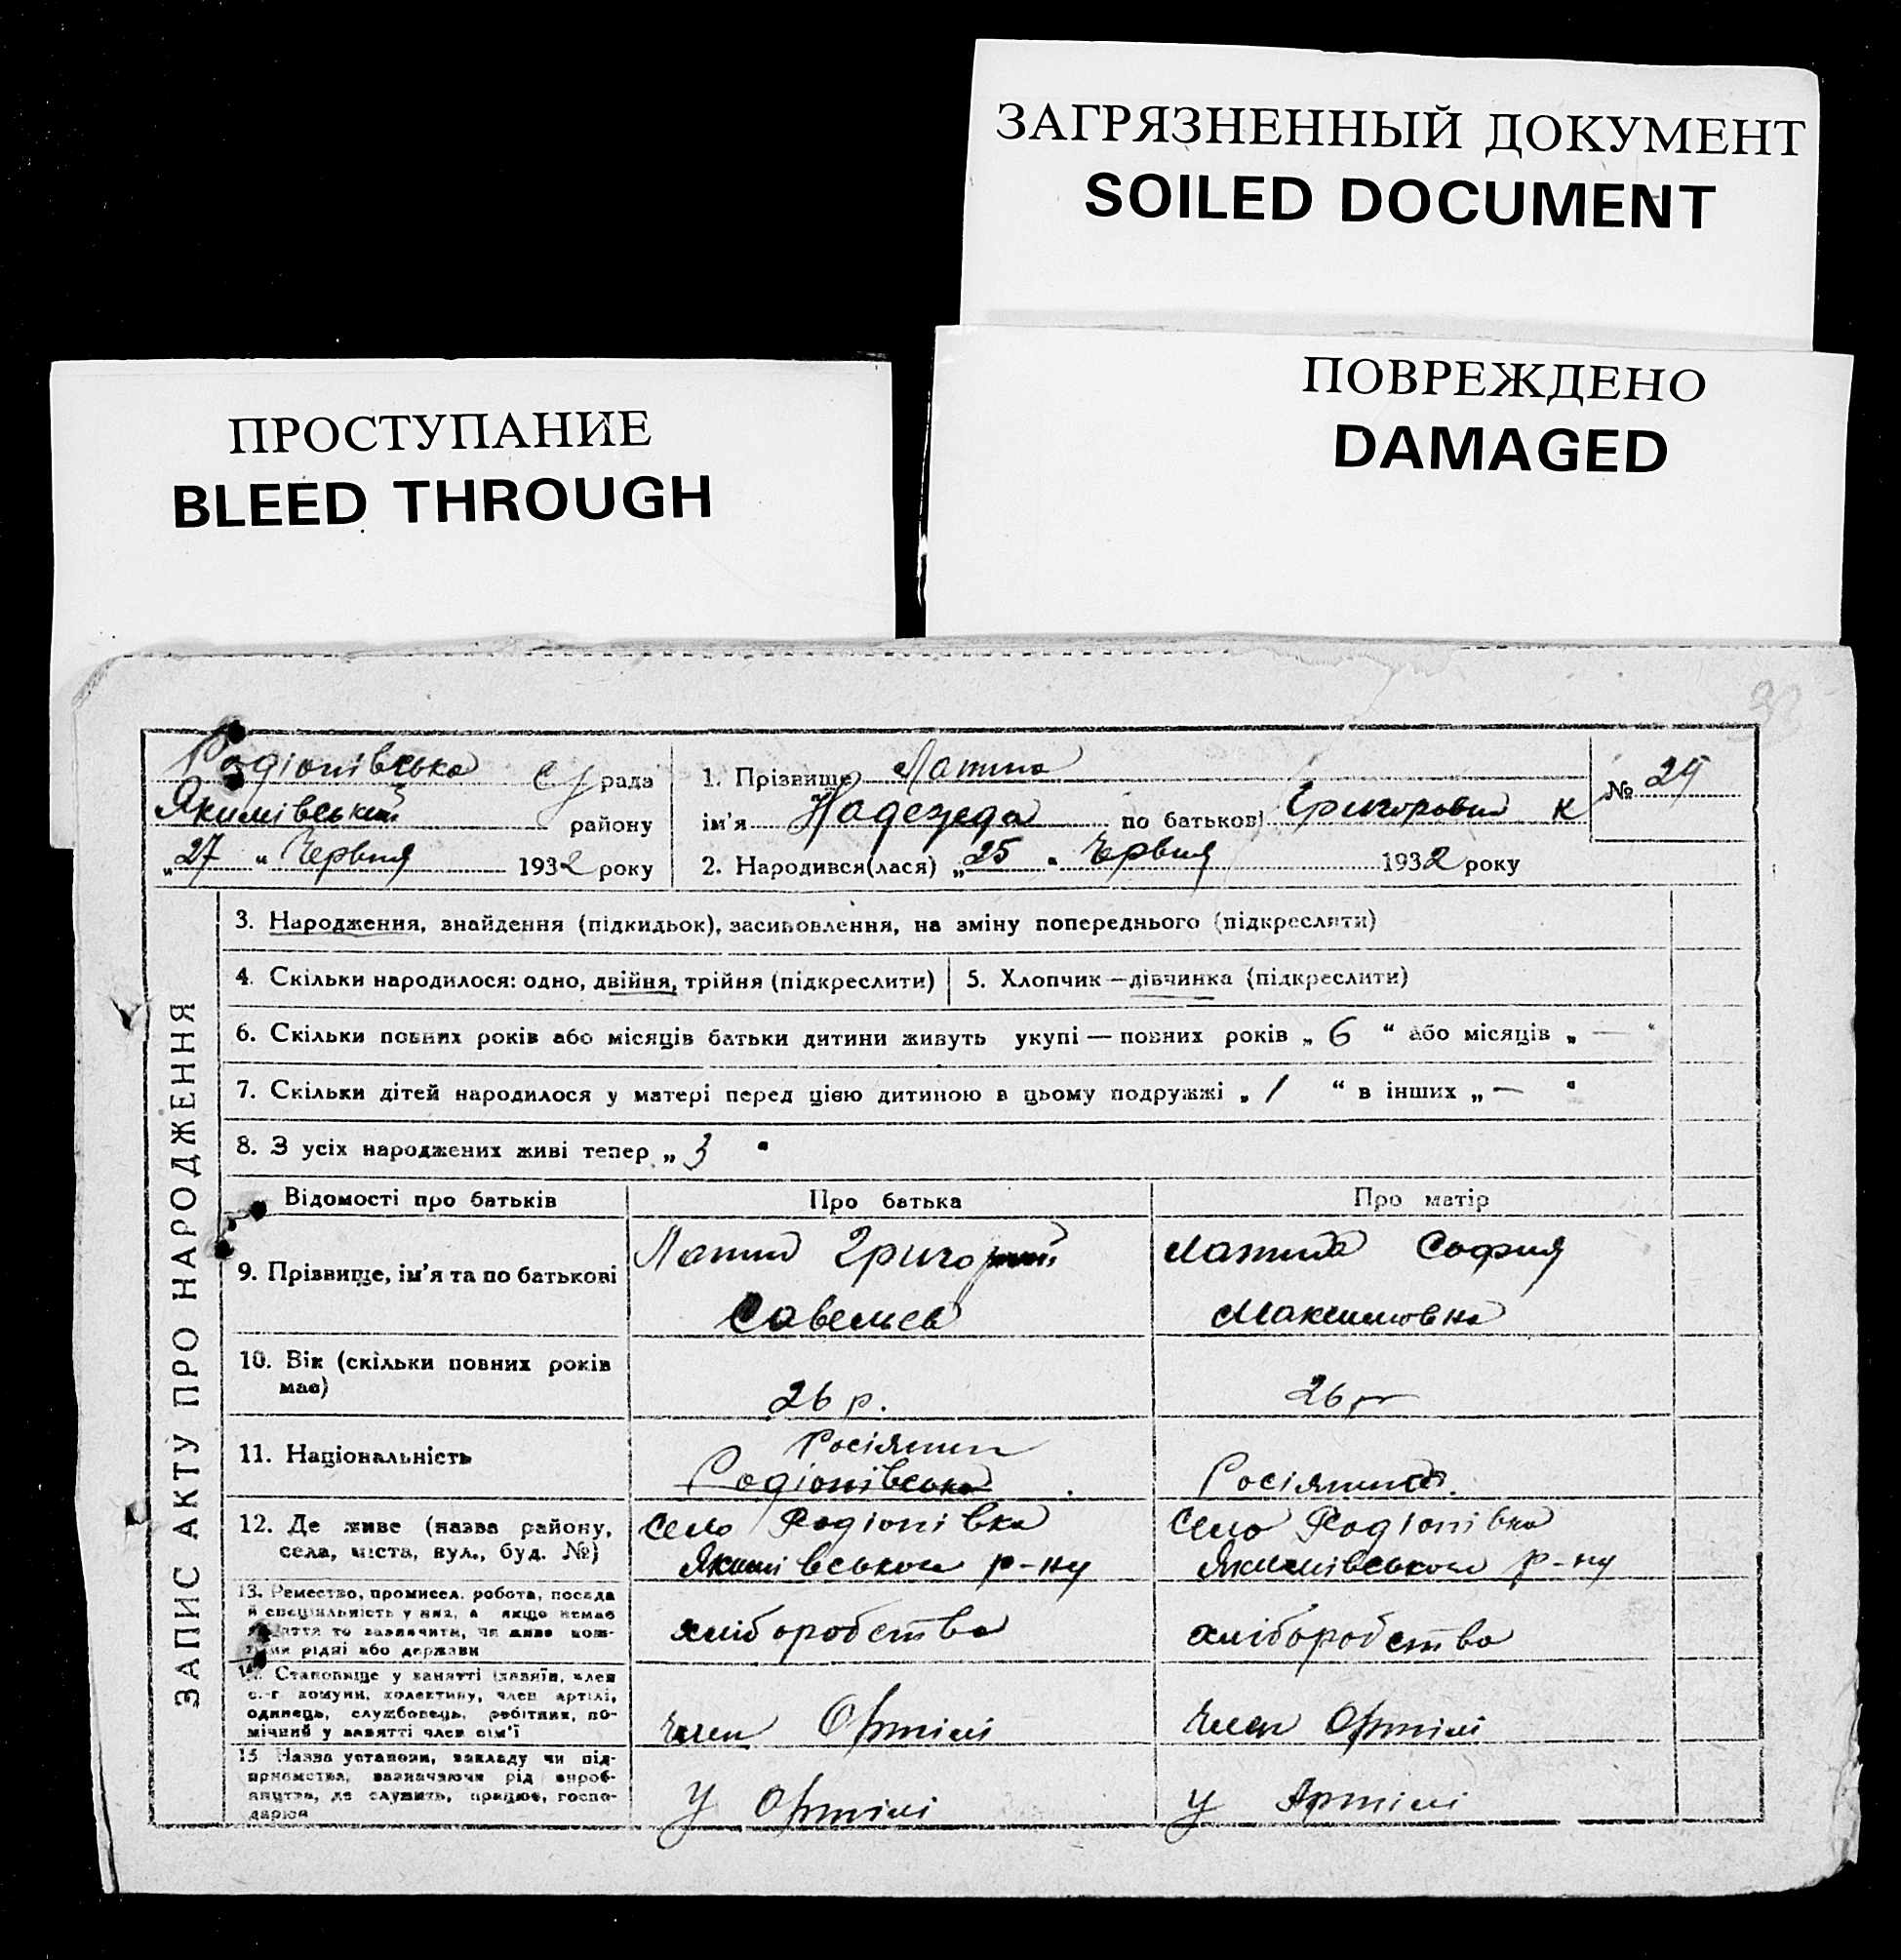 ЗАГРЯЗНЕННЫЙ ДОКУМЕНТ
SOILED DOCUMENT
ПОВРЕЖДЕНО
DAMAGED
ПРОСТУПАНИЕ
BLEED THROUGH
Родіонівська с/рада
Якимівський району
„27" Червня 1932 року
1. Прізвище
ім'я Надежда по батькові Григоровна
2. Народився(лася) „25" Червня 1932 року
№
ЗАПИС АКТУ ПРО НАРОДЖЕННЯ
3. Народження, знайдення (підкидьок), засиновлення, на зміну попереднього (підкреслити)
4. Скільки народилося: одно, двійня, трійня (підкреслити)
5. Хлопчик — дівчинка (підкреслити)
6. Скільки повних років або місяців батьки дитини живуть укупі — повних років „ 6 “ або місяців „ — “
7. Скільки дітей народилося у матері перед цією дитиною в цьому подружжі „ 1 “ в інших „ — “
8. З усіх народжених живі тепер „ 3 “
Відомості про батьків
Про батька
Про матір
9. Прізвище, ім'я та по батькові
Григорий
Савельев
София
Максимовна
10. Вік (скільки повних років має)
26 р.
26 р
11. Національність
Росіянин
Родіонівська
Росіянина
12. Де живе (назва району,
села, міста, вул., буд. №)
Село Родіонівка
Якимівського р-ну
Село Родіонівка
Якимівського р-ну
13. Ремество, промисел, робота, посада
й спеціяльність у них, а якщо немає
заняття то зазначити, чи живе кош-
тами рідні або держави
хліборобство
хліборобство
14. Становище у занятті (хазяїн, член
с.-г. комуни, колективу, член артілі,
одинець, службовець, робітник, по-
мічний у занятті член сім'ї
член Артілі
член Артілі
15 Назва установи, закладу чи під-
приємства, зазначаючи рід вироб-
ництва, де служить, працює, госпо-
дарює
У Артілі
У Артілі